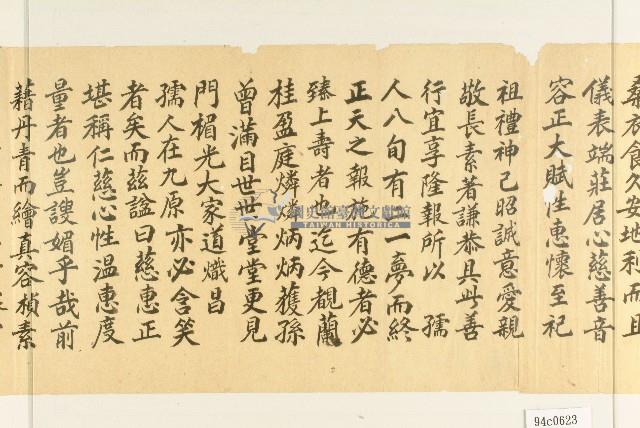 彝衣食久安地利而且
儀表端莊居心慈善音
容正大賦性惠懷至祀
祖禮神己昭誠意愛親
敬長素著謙恭具此善
行宜享隆報所以 孺
人八旬有 一夢而終
正天之報施有德者必
臻上壽者也迄今覩蘭
桂盈庭燐 炳炳獲孫
曾滿目世世堂堂更見
門楣光大家道熾昌
孺人在九原亦必含笑
者矣而茲諡曰慈惠正
堪稱仁慈心性温惠度
量者也豈謏媚乎哉前
藉丹青而繪真容楨素
國史館臺灣文獻館
TAIWAN HISTORICA
94c0623